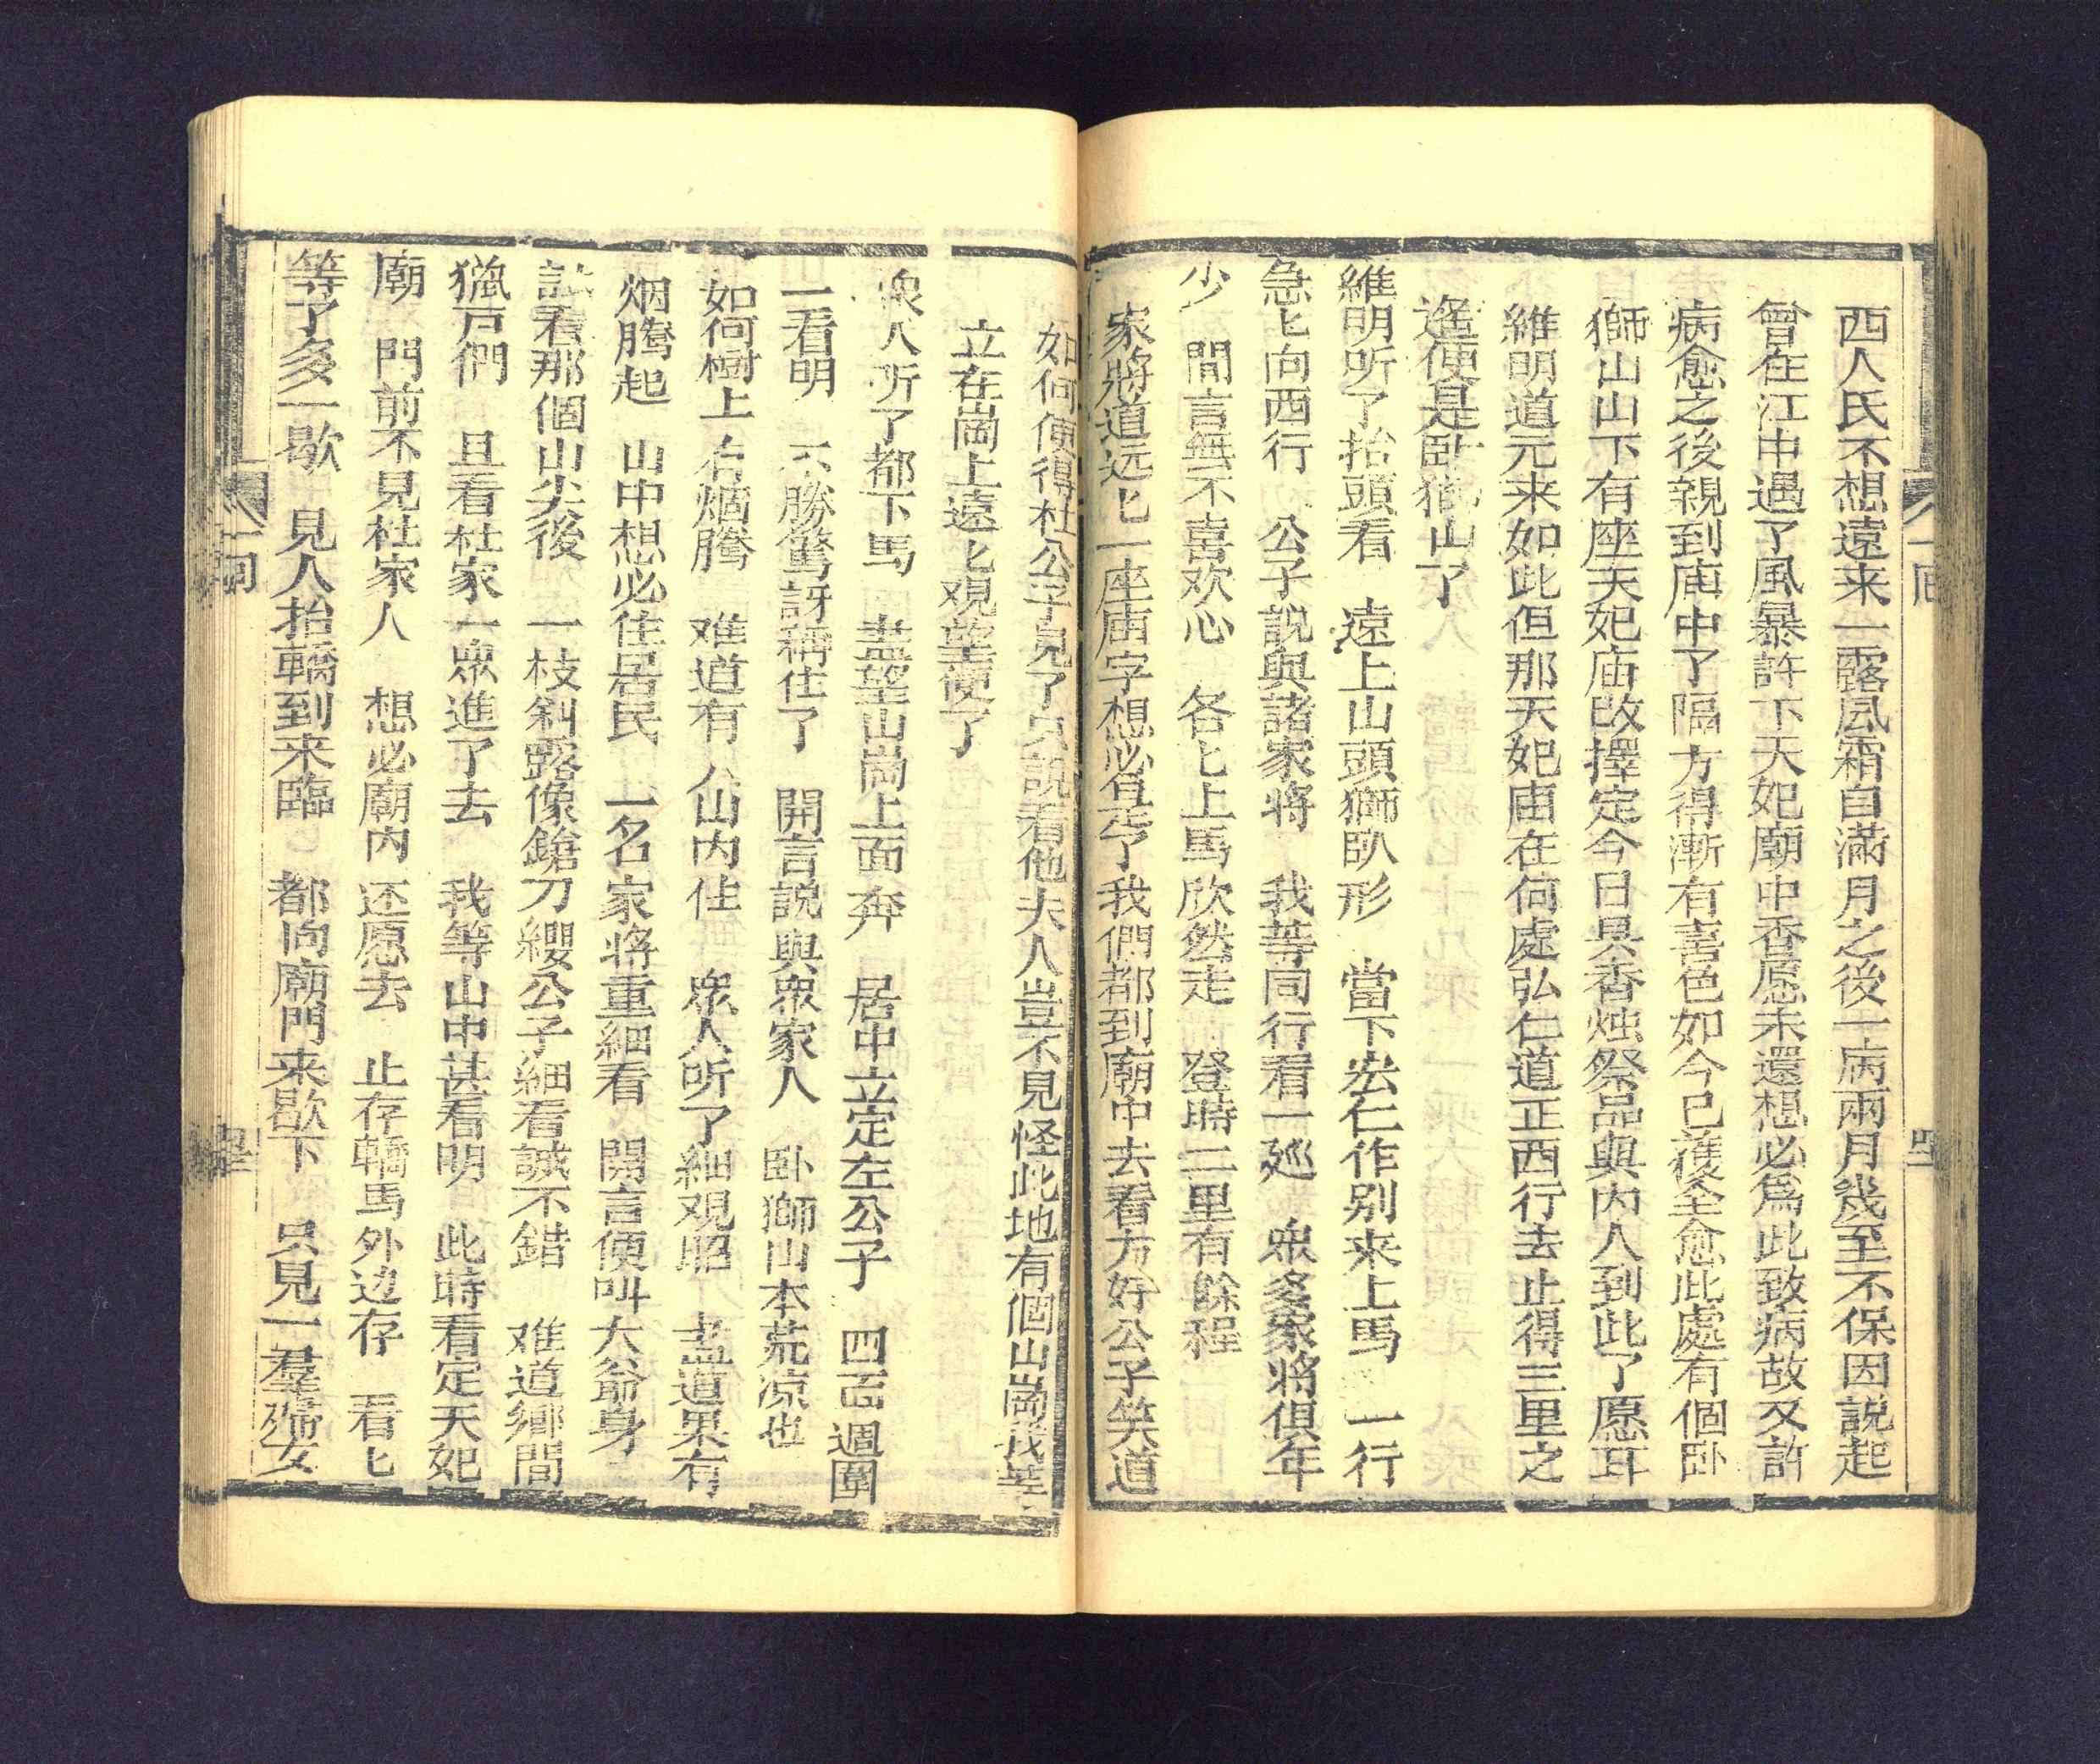 西人氏不想遠来一露風霜自滿月之後一病兩月幾至不保因説起
曾在江中遇了風暴許下天妃廟中香愿未還想必爲此致病故又許
病愈之後親到庙中了隔方得漸有喜色如今已獲全愈此處有個卧
獅山山下有座天妃庙改擇定今日具香烛祭品與内人到此了愿耳
維明道元来如此但那天妃庙在何處弘仁道正西行去止得三里之
遙便是卧獅山了
維明听了抬頭看　遠上山頭獅臥形　當下宏仁作别来上馬　一行
急匕向西行　公子説與諸家將　我等同行看一廵　衆多家將俱年
少　聞言無不喜欢心　各匕上馬欣然走　登時二里有餘程
家將道远匕一座庙宇想必是了我們都到廟中去看方好公子笑道
如何使得杜公子見了只說看他夫人豈不見怪此地有個山崗我等
立在崗上遠匕观望便了
衆人听了都下馬　盡望山崗上面奔　居中立定左公子　四面週圍
一看明　不勝驚訝稱住了　開言説與衆家人　卧獅山本荒凉也
如何樹上有烟腾　难道有人山内住　衆人听了細观眧　盡道果有
烟腾起　山中想必住居民　一名家將重細看　開言便叫大爺身
試看那個山尖後　一枝斜露像鎗刀纓公子細看誠不錯　难道鄉間
獵戸們　且看杜家一衆進了去　我等山中甚看明　此時看定天妃
廟　門前不見杜家人　想必廟内还愿去　止存轎馬外边存　看匕
等了多一歇　見人抬轎到来臨　都向廟門来歇下　只見一羣婦女
一囬
一囬